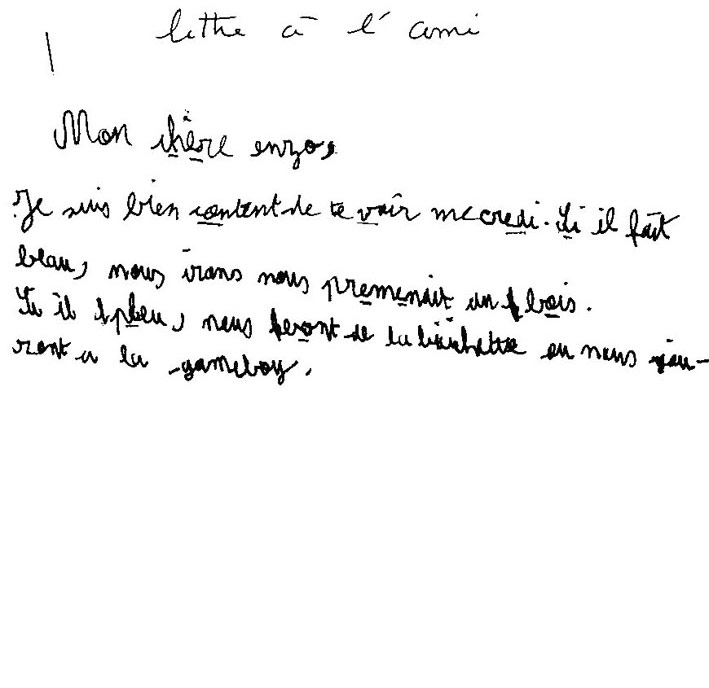 lettre à l'ami
Mon chère enzo,
Je suis bien content de te voir mecredi. Si il fait
beau, nous irons nous premenait au bois.
Si il pleu, nous feront de la bicichette ou nous jou-
ront a la gameboy.